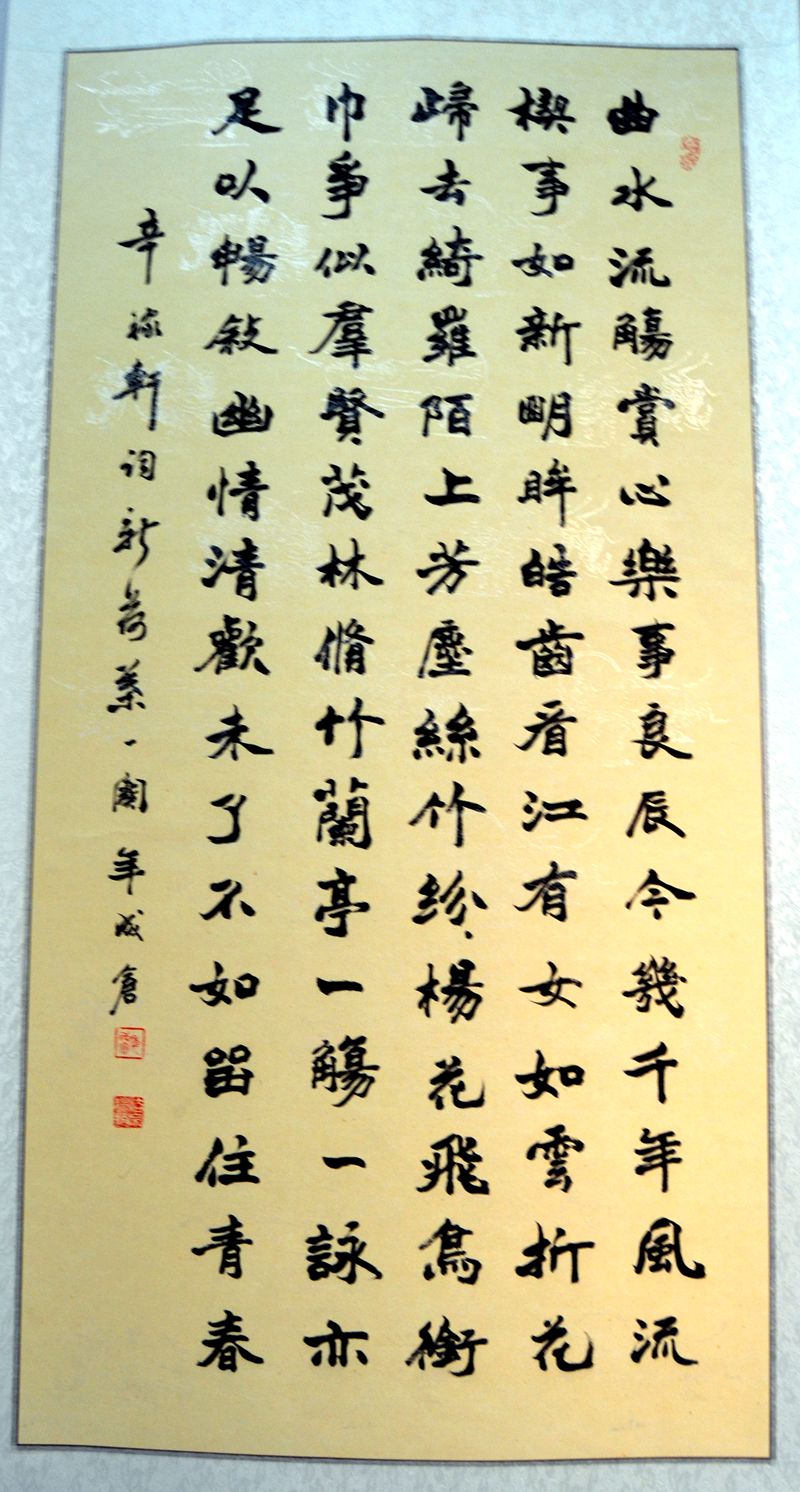 曲水流觴賞心樂事良辰今幾千年風流
禊事如新明眸皓齒看江有女如雲折花
歸去綺羅陌上芳塵絲竹紛〻楊花飛鳥銜
巾爭似羣賢茂林脩竹蘭亭一觴一詠亦
足以暢敘幽情清歡未了不如留住青春
辛稼軒詞新荷葉一闋年成